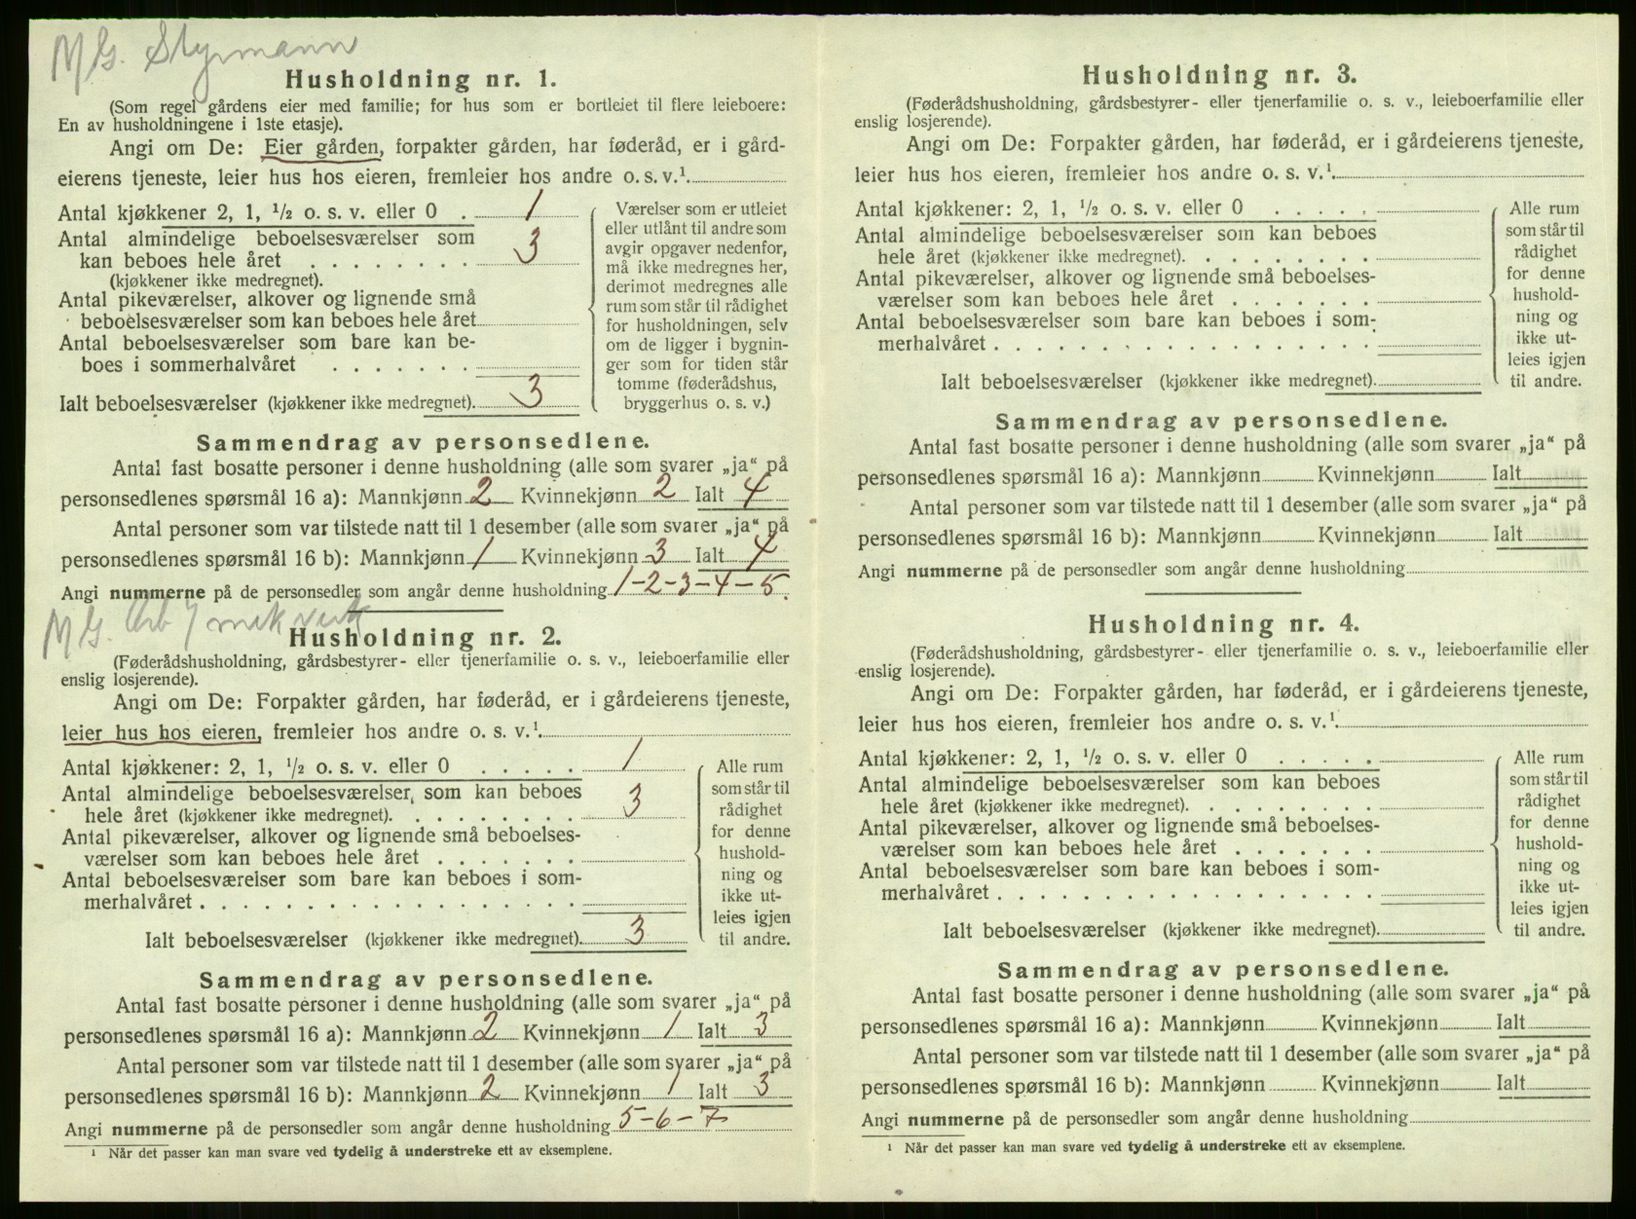 M G. Styrmann
Husholdning nr. 1.
(Som regel gårdens eier med familie; for hus som er bortleiet til flere leieboere:
En av husholdningene i 1ste etasje).
Angi om De: Eier gården, forpakter gården, har føderåd, er i gård-
eierens tjeneste, leier hus hos eieren, fremleier hos andre o. s. v.¹.
Antal kjøkkener 2, 1, ½ o. s. v. eller 0 . 1
Antal almindelige beboelsesværelser som
kan beboes hele året . . . . . . . . 3
(kjøkkener ikke medregnet).
Antal pikeværelser, alkover og lignende små
beboelsesværelser som kan beboes hele året
Antal beboelsesværelser som bare kan be-
boes i sommerhalvåret . . . . . . .
Ialt beboelsesværelser (kjøkkener ikke medregnet). 3
Værelser som er utleiet
eller utlånt til andre som
avgir opgaver nedenfor,
må ikke medregnes her,
derimot medregnes alle
rum som står til rådighet
for husholdningen, selv
om de ligger i bygnin-
ger som for tiden står
tomme (føderådshus,
bryggerhus o. s. v.)
Sammendrag av personsedlene.
Antal fast bosatte personer i denne husholdning (alle som svarer „ja“ på
personsedlenes spørsmål 16 a): Mannkjønn 2 Kvinnekjønn 2 Ialt 4
Antal personer som var tilstede natt til 1 desember (alle som svarer „ja“ på
personsedlenes spørsmål 16 b): Mannkjønn 1 Kvinnekjønn 3 Ialt 4
Angi nummerne på de personsedler som angår denne husholdning 1-2-3-4-5.
M G. Arb / mek verk
Husholdning nr. 2.
(Føderådshusholdning, gårdsbestyrer- eller tjenerfamilie o. s. v., leieboerfamilie eller
enslig losjerende).
Angi om De: Forpakter gården, har føderåd, er i gårdeierens tjeneste,
leier hus hos eieren, fremleier hos andre o. s. v.¹.
Antal kjøkkener: 2, 1, ½ o. s. v. eller 0 . . . . . 1
Antal almindelige beboelsesværelser, som kan beboes
hele året (kjøkkener ikke medregnet). . . . . . . . . 3
Antal pikeværelser, alkover og lignende små beboelses-
værelser som kan beboes hele året . . . . . . .
Antal beboelsesværelser som bare kan beboes i som-
merhalvåret . . . . . . . . . . . . . . . . . .
Ialt beboelsesværelser (kjøkkener ikke medregnet). 3
Alle rum
som står til
rådighet
for denne
hushold-
ning og
ikke ut-
leies igjen
til andre.
Sammendrag av personsedlene.
Antal fast bosatte personer i denne husholdning (alle som svarer „ja“ på
personsedlenes spørsmål 16 a): Mannkjønn 2 Kvinnekjønn 1 Ialt 3
Antal personer som var tilstede natt til 1 desember (alle som svarer „ja“ på
personsedlenes spørsmål 16 b): Mannkjønn 2 Kvinnekjønn 1 Ialt 3
Angi nummerne på de personsedler som angår denne husholdning 5-6-7
¹ Når det passer kan man svare ved tydelig å understreke ett av eksemplene.
Husholdning nr. 3.
(Føderådshusholdning, gårdsbestyrer- eller tjenerfamilie o. s. v., leieboerfamilie eller
enslig losjerende).
Angi om De: Forpakter gården, har føderåd, er i gårdeierens tjeneste,
leier hus hos eieren, fremleier hos andre o. s. v.¹.
Antal kjøkkener: 2, 1, ½ o. s. v. eller 0 . . . . .
Antal almindelige beboelsesværelser som kan beboes
hele året (kjøkkener ikke medregnet). . . . . . . . .
Antal pikeværelser, alkover og lignende små beboelses-
værelser som kan beboes hele året . . . . . . .
Antal beboelsesværelser som bare kan beboes i som-
merhalvåret . . . . . . . . . . . . . . . . . .
Ialt beboelsesværelser (kjøkkener ikke medregnet).
Alle rum
som står til
rådighet
for denne
hushold-
ning og
ikke ut-
leies igjen
til andre.
Sammendrag av personsedlene.
Antal fast bosatte personer i denne husholdning (alle som svarer „ja“ på
personsedlenes spørsmål 16 a): Mannkjønn Kvinnekjønn Ialt
Antal personer som var tilstede natt til 1 desember (alle som svarer „ja“ på
personsedlenes spørsmål 16 b): Mannkjønn Kvinnekjønn Ialt
Angi nummerne på de personsedler som angår denne husholdning
Husholdning nr. 4.
(Føderådshusholdning, gårdsbestyrer- eller tjenerfamilie o. s. v., leieboerfamilie eller
enslig losjerende).
Angi om De: Forpakter gården, har føderåd, er i gårdeierens tjeneste,
leier hus hos eieren, fremleier hos andre o. s. v.¹.
Antal kjøkkener: 2, 1, ½ o. s. v. eller 0 . . . . .
Antal almindelige beboelsesværelser som kan beboes
hele året (kjøkkener ikke medregnet). . . . . . . . .
Antal pikeværelser, alkover og lignende små beboelses-
værelser som kan beboes hele året . . . . . . .
Antal beboelsesværelser som bare kan beboes i som-
merhalvåret . . . . . . . . . . . . . . . . . .
Ialt beboelsesværelser (kjøkkener ikke medregnet).
Alle rum
som står til
rådighet
for denne
hushold-
ning og
ikke ut-
leies igjen
til andre.
Sammendrag av personsedlene.
Antal fast bosatte personer i denne husholdning (alle som svarer „ja“ på
personsedlenes spørsmål 16 a): Mannkjønn Kvinnekjønn Ialt
Antal personer som var tilstede natt til 1 desember (alle som svarer „ja“ på
personsedlenes spørsmål 16 b): Mannkjønn Kvinnekjønn Ialt
Angi nummerne på de personsedler som angår denne husholdning
¹ Når det passer kan man svare ved tydelig å understreke ett av eksemplene.